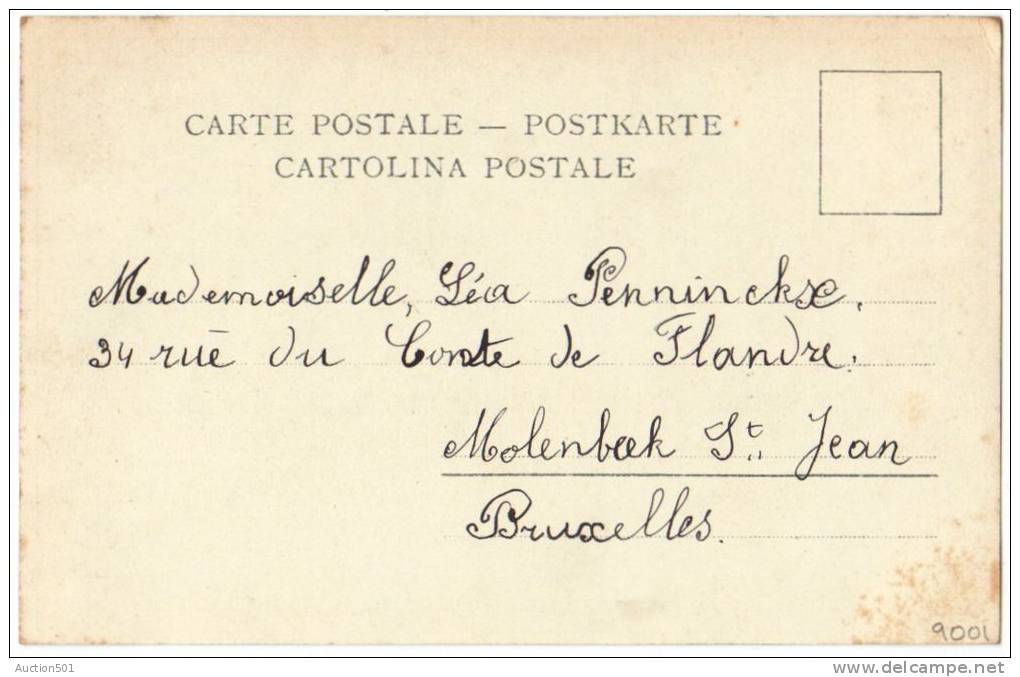 CARTE POSTALE — POSTKARTE
CARTOLINA POSTALE
Mademoiselle, Léa Penninckx.
34 rue du Comte de Flandre.
Molenbeek St. Jean
Bruxelles.
9001
Auction501
www.delcampe.net